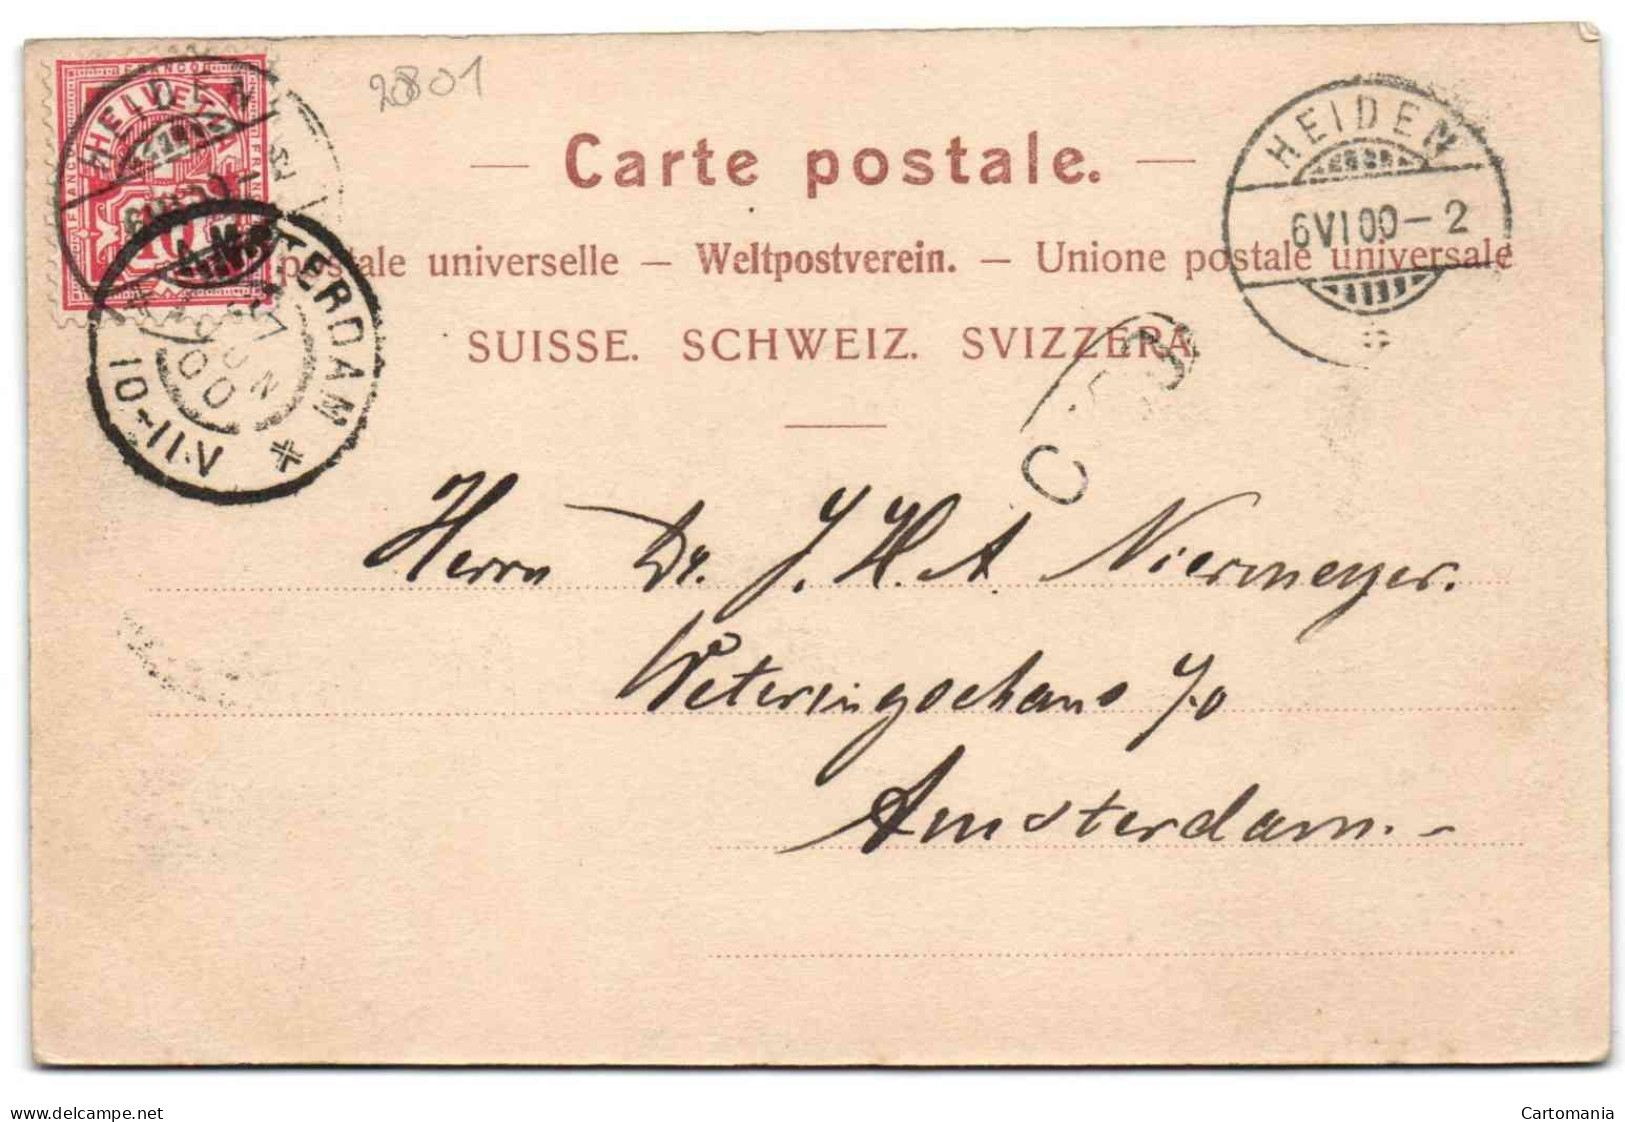 20801
FRANCO
HELVETIA
FRANCO
FRANCO
10
HEIDEN
— Carte postale. —
HEIDEN
6 VI 00 – 2
postale universelle — Weltpostverein. — Unione postale universale
SUISSE. SCHWEIZ. SVIZZERA
AMSTERDAM
10-11 V
JUN
00
Herrn Dr. J. H. A Niermeyer.
Weteringschans 70
Amsterdam. –
www.delcampe.net
Cartomania